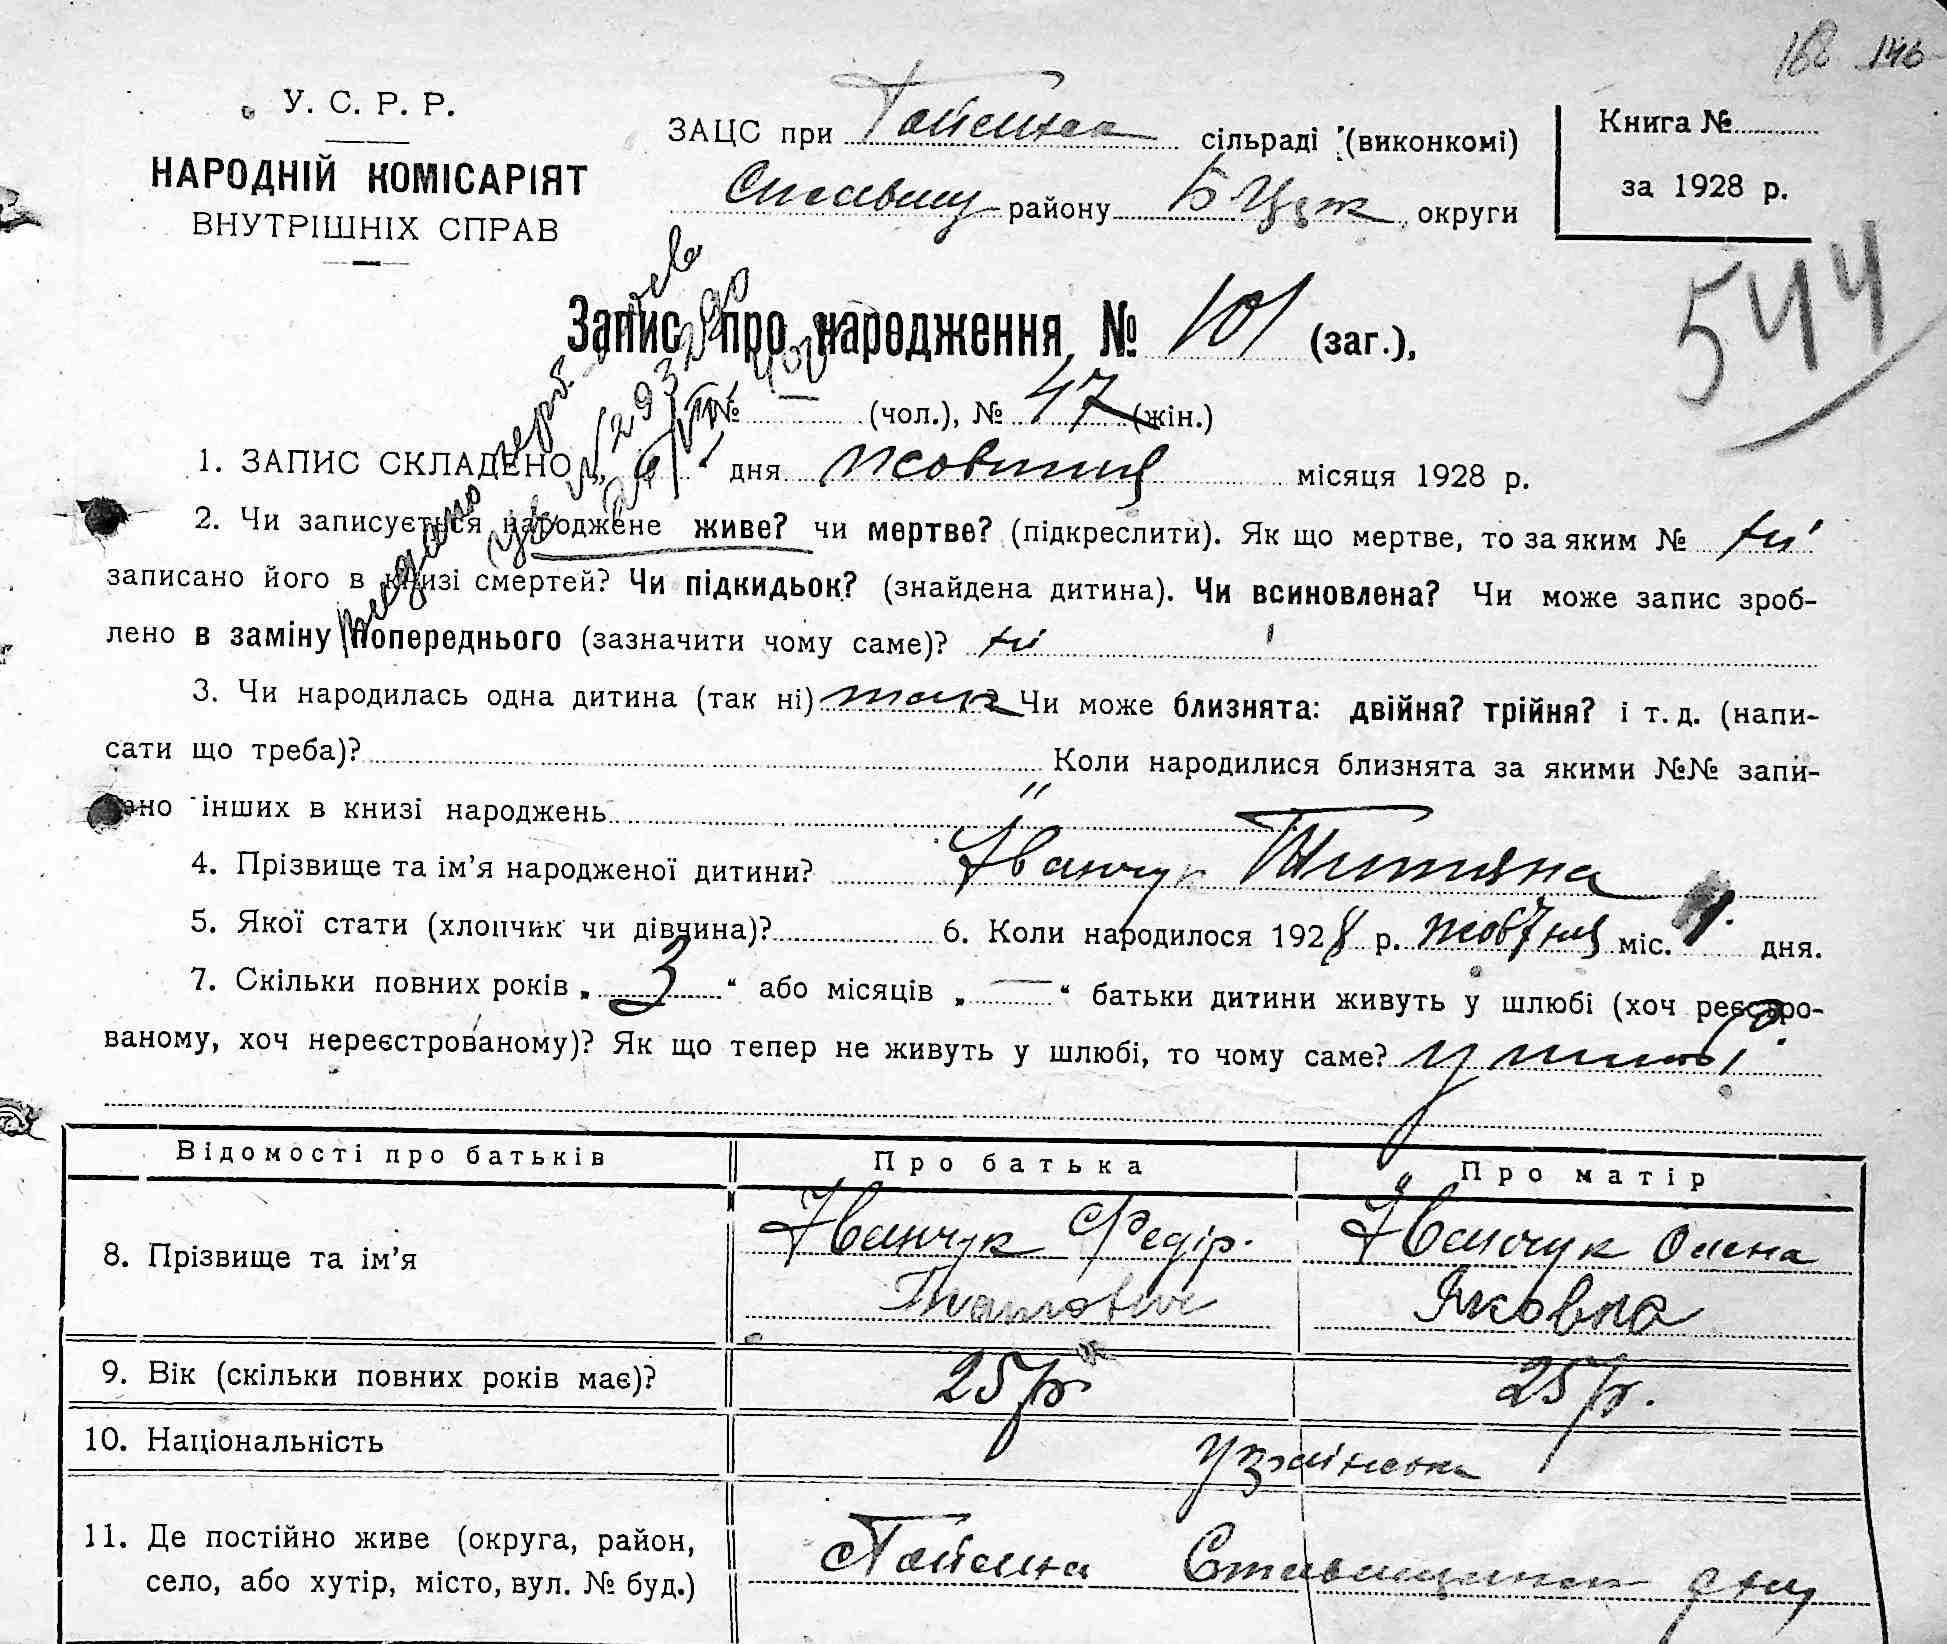 146
У. С. Р. Р.
НАРОДНІЙ КОМІСАРІЯТ
ВНУТРІШНІХ СПРАВ
ЗАЦС при Гайсина сільраді (виконкомі)
району Б Црк округи
Книга №
за 1928 р.
544
Запис про народження № 101 (заг.),
№ — (чол.), № 47 (жін.)
1. ЗАПИС СКЛАДЕНО „ “ дня жовтня місяця 1928 р.
2. Чи записується народжене живе? чи мертве? (підкреслити). Як що мертве, то за яким № ні
записано його в книзі смертей? Чи підкидьок? (знайдена дитина). Чи всиновлена? Чи може запис зроб-
лено в заміну попереднього (зазначити чому саме)? ні
3. Чи народилась одна дитина (так ні) так Чи може близнята: двійня? трійня? і т. д. (напи-
сати що треба)? Коли народилися близнята за якими №№ запи-
сано інших в книзі народжень
4. Прізвище та ім’я народженої дитини? Іванчук Титяна
5. Якої стати (хлопчик чи дівчина)? 6. Коли народилося 1928 р. жовтня міс. дня.
7. Скільки повних років „ 3 “ або місяців „ — “ батьки дитини живуть у шлюбі (хоч реєстро-
ваному, хоч нереєстрованому)? Як що тепер не живуть у шлюбі, то чому саме? у шлюбі
Відомості про батьків Про батька Про матір
8. Прізвище та ім’я Іванчук Федір Іванчук Олена
Яковна
9. Вік (скільки повних років має)? 25 р. 25 р.
10. Національність українська
11. Де постійно живе (округа, район,
село, або хутір, місто, вул. № буд.)